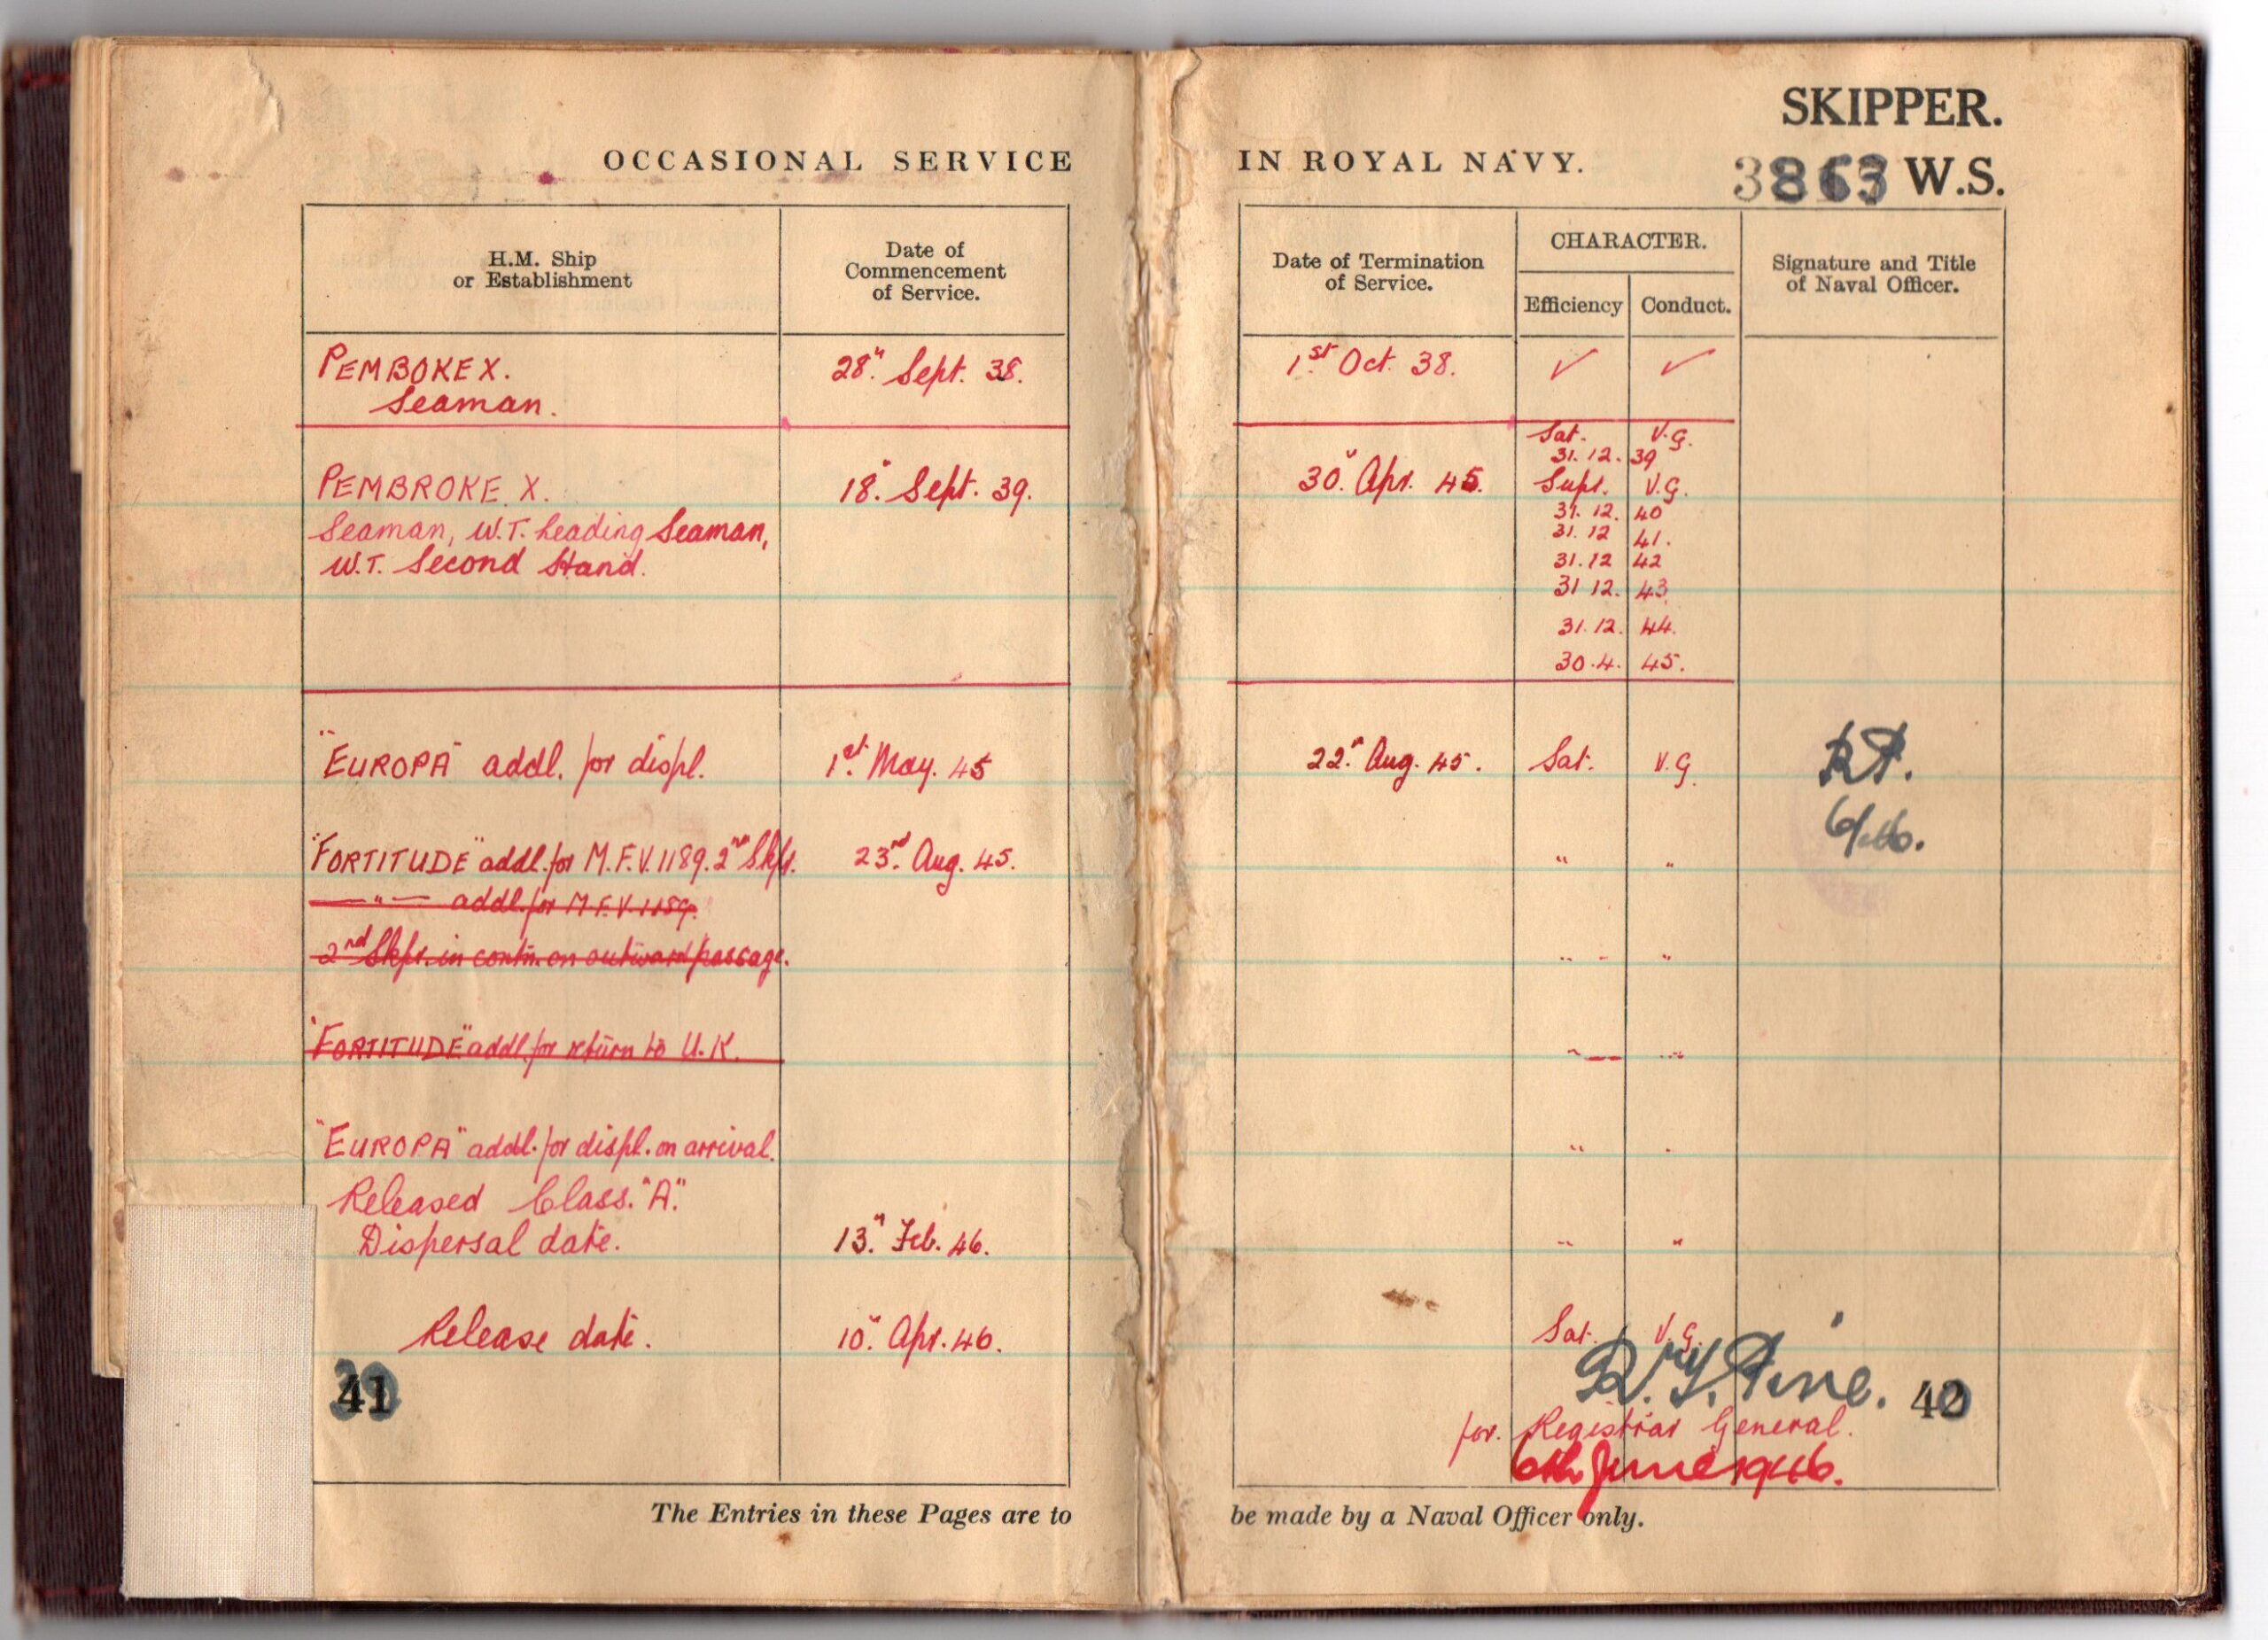 SKIPPER.
OCCASIONAL SERVICE IN ROYAL NAVY.
W.S.
H.M. Ship
or Establishment
Date of
Commencement
of Service.
Date of Termination
of Service.
CHARACTER.
Efficiency
Conduct.
Signature and Title
of Naval Officer.
PEMBOKE X. 28" Sept. 38. 1st Oct. 38. ✓ ✓
Seaman.
Sat. V.G.
31.12.39
PEMBROKE X. 18" Sept. 39. 30" Apr. 45. Supr. V.G.
31.12.40
Seaman, W.T. Leading Seaman, 31.12 41.
W.T. Second Hand. 31.12 42
31 12. 43.
31.12. 44.
30.4. 45.
"EUROPA" addl. for displ. 1st May. 45 22" Aug. 45. Sat. V.G.
"FORTITUDE" addl. for M.F.V. 1189. 2nd Skpr. 23rd Aug. 45. " "
—"— addl. for M.F.V. 1189.
2nd Skpr. in contn. on outward passage. " "
"FORTITUDE" addl. for return to U.K. " "
"EUROPA" addl. for displ. on arrival. " "
Released Class. "A".
Dispersal date. 13" Feb. 46. " "
Release date. 10" Apr. 46. Sat. V.G.
41
for Registrar General.
6th June 1946.
The Entries in these Pages are to be made by a Naval Officer only.